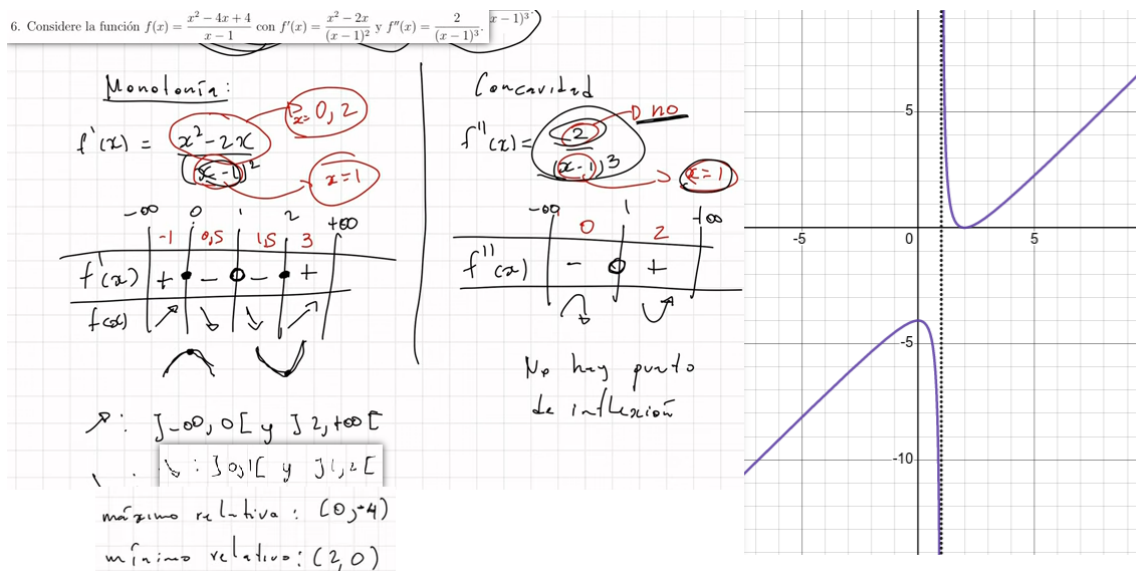 6. Considere la función f(x) = \frac{x^2 - 4x + 4}{x - 1} con f'(x) = \frac{x^2 - 2x}{(x - 1)^2} y f''(x) = \frac{2}{(x - 1)^3}.
x - 1)^3.
Monotonía:
f'(x) = \frac{x^2 - 2x}{(x - 1)^2}
x = 0, 2
x = 1
-∞ 0 1 2 +∞
-1 0,5 1,5 3
f'(x) + - - +
f(x) ↗ ↘ ↘ ↗
↗: ]-∞, 0[ y ]2, +∞[
↘: ]0, 1[ y ]1, 2[
máximo relativo: (0, -4)
mínimo relativo: (2, 0)
Concavidad
f''(x) = \frac{2}{(x - 1)^3}
no
x = 1
-∞ 1 +∞
0 2
f''(x) - +
No hay punto
de inflexión
5
-5 0 5
-5
-10